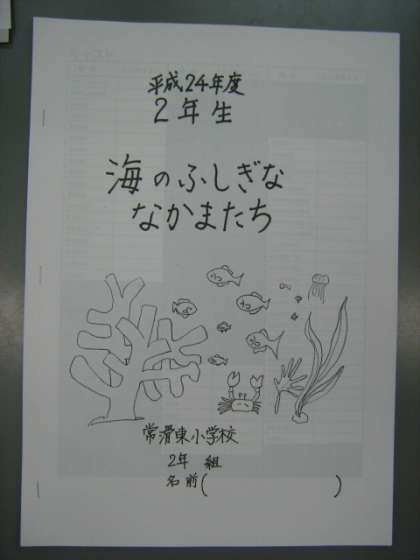 平成24年度
2年生
海のふしぎな
なかまたち
常滑東小学校
2年 組
名前( )